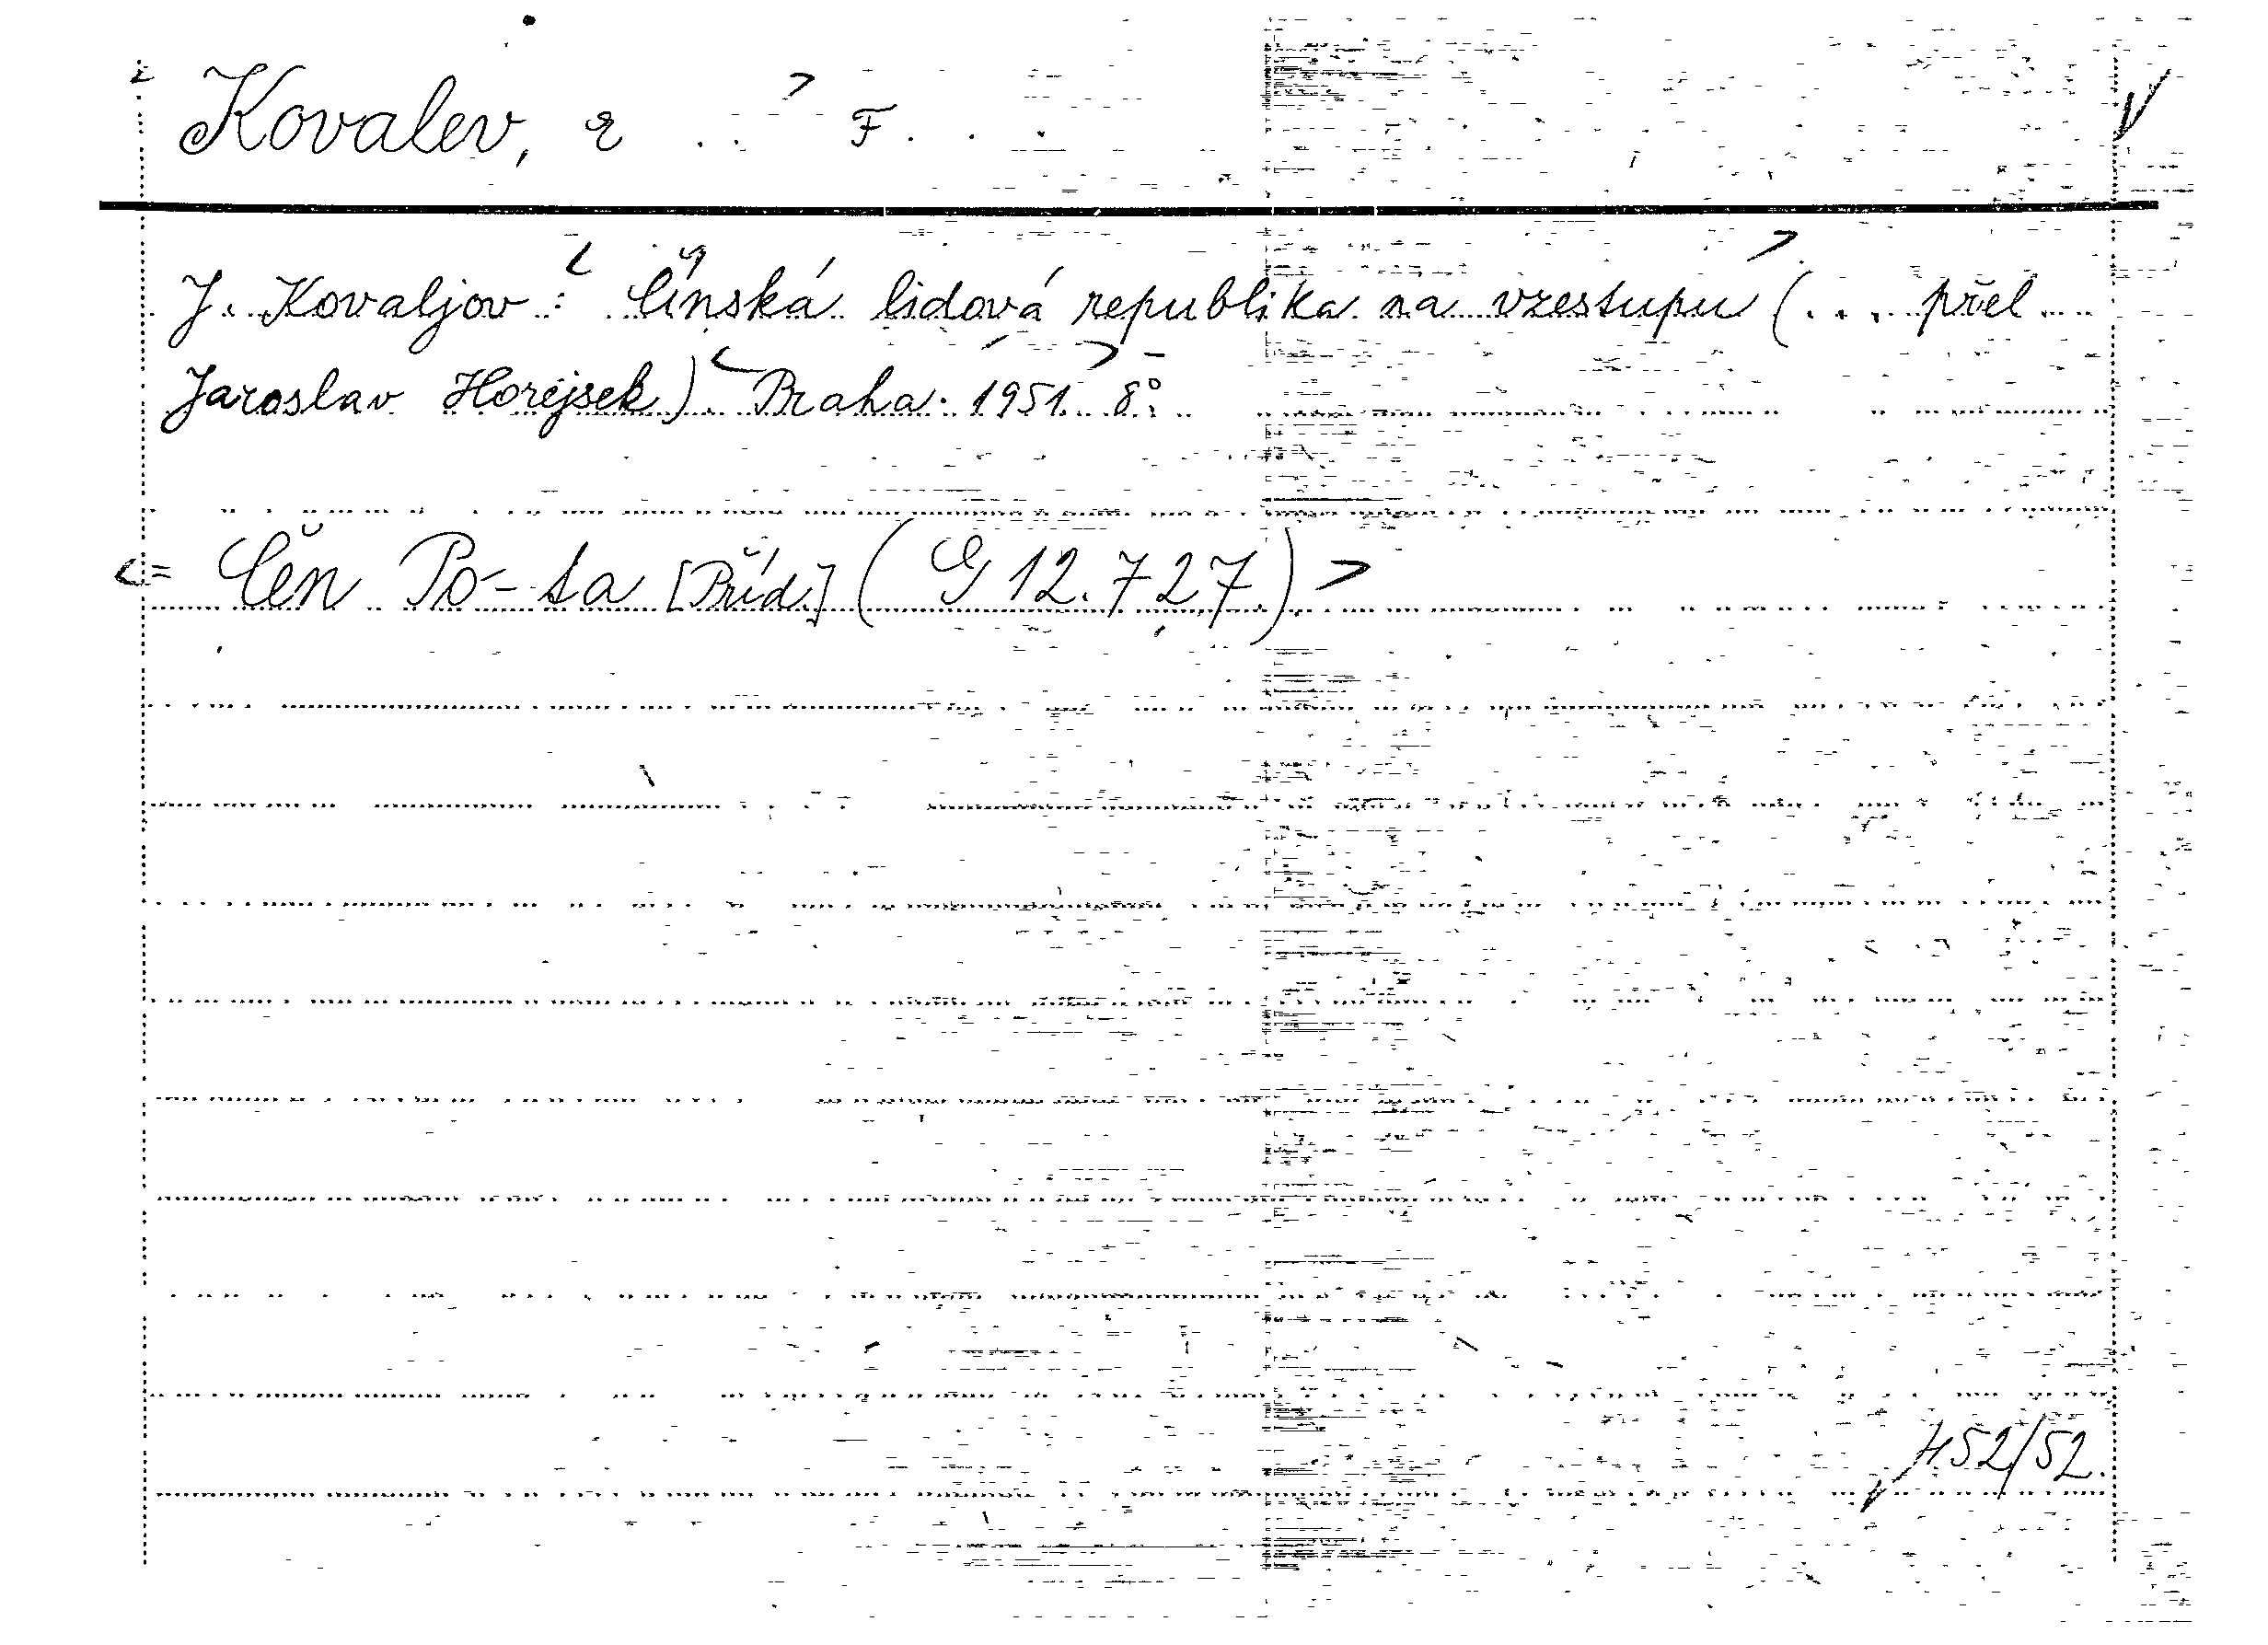 Kovalev, E. F.
J. Kovaljov: Čínská lidová republika na vzestupu (... přel.
Jaroslav Horejsek). Praha. 1951. 8°.
= Čěn Po-ta [Příd.] (G 12.727).
452/52.